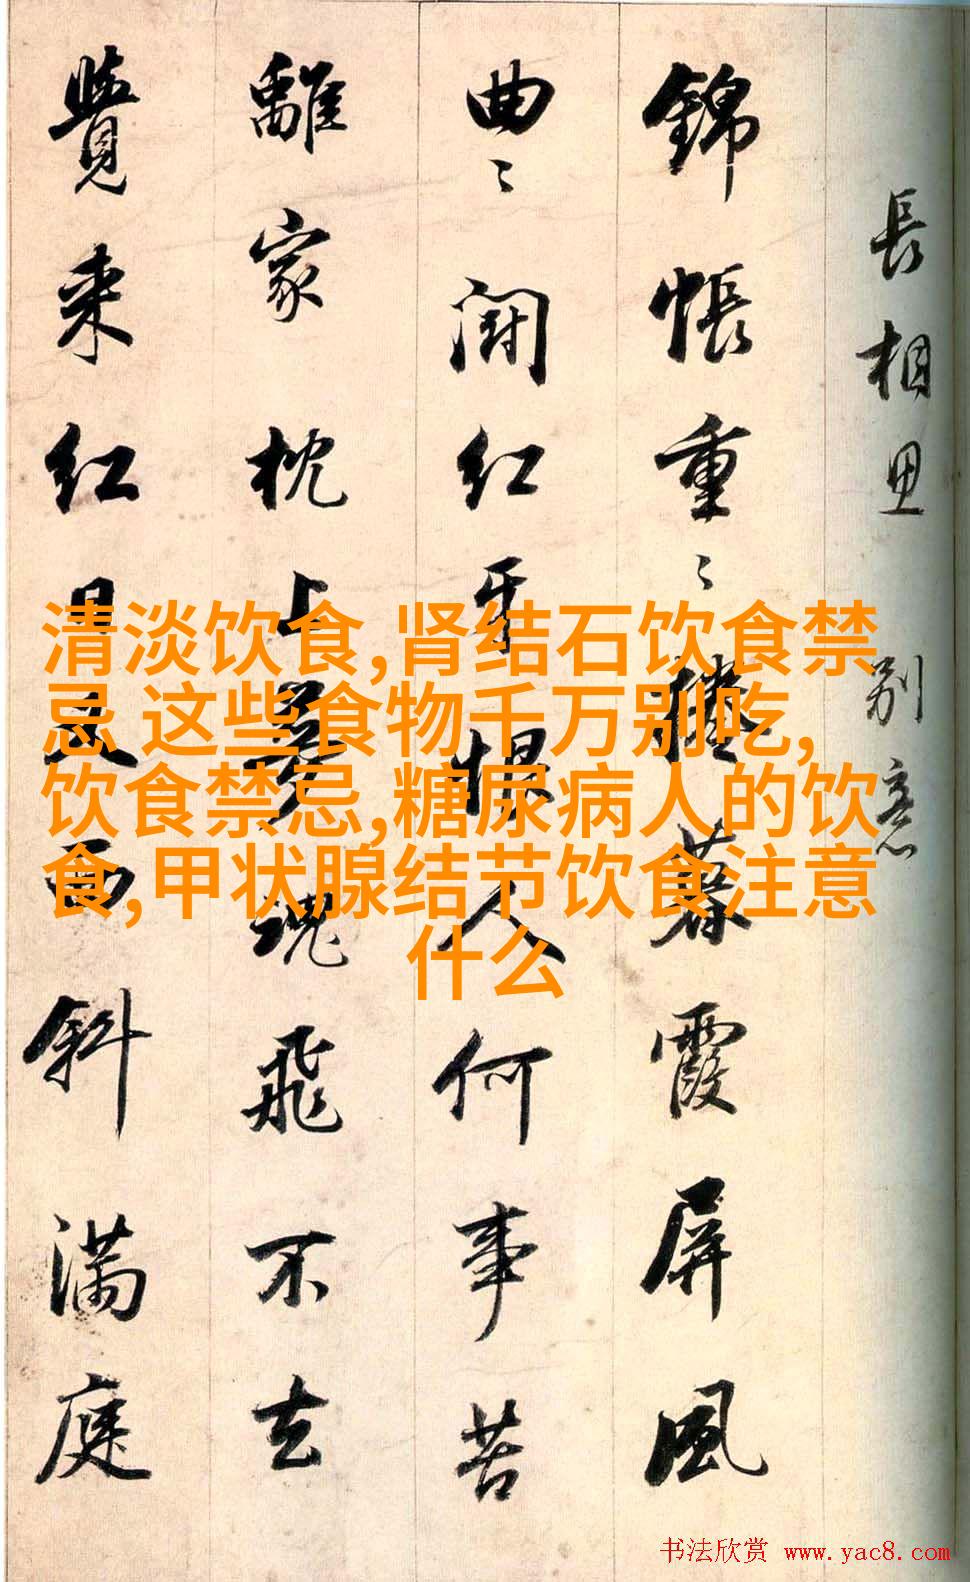 長相思 别意
錦帳重〻捲暮霞屏風
曲〻鬪紅牙恨人何事苦
離家枕上夢魂飛不去
覺来紅日又西斜満庭
清淡饮食,肾结石饮食禁
忌 这些食物千万别吃,
饮食禁忌,糖尿病人的饮
食,甲状腺结节饮食注意
什么
书法欣赏 www.yac8.com